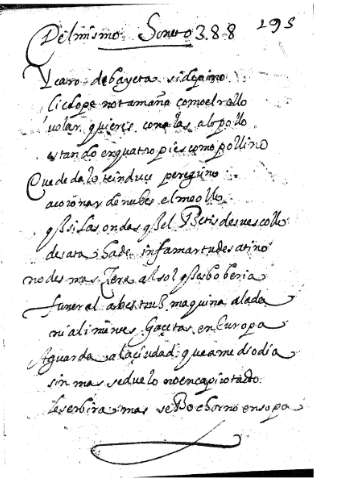 Del mismo Soneto 388 195
Ycaro de bayeta si de pino
Ciclope no tamaño como el rollo
volar quieres con alas alo pollo
estando en quatro pies como pollino
Que dedalo te induce peregrino
a coronar de nubes el meollo
q si las ondas q el Betis de su escollo
desata hade infamar tu desatino
no des mas Cera al sol q es boberia
funeral abestruz maquina alada
ni alimentes Gaçetas en Europa
Aguarda a la çiudad que a medio dia
sin mas se duelo no en capirotada
le serbira mas se Bochorno en sopa